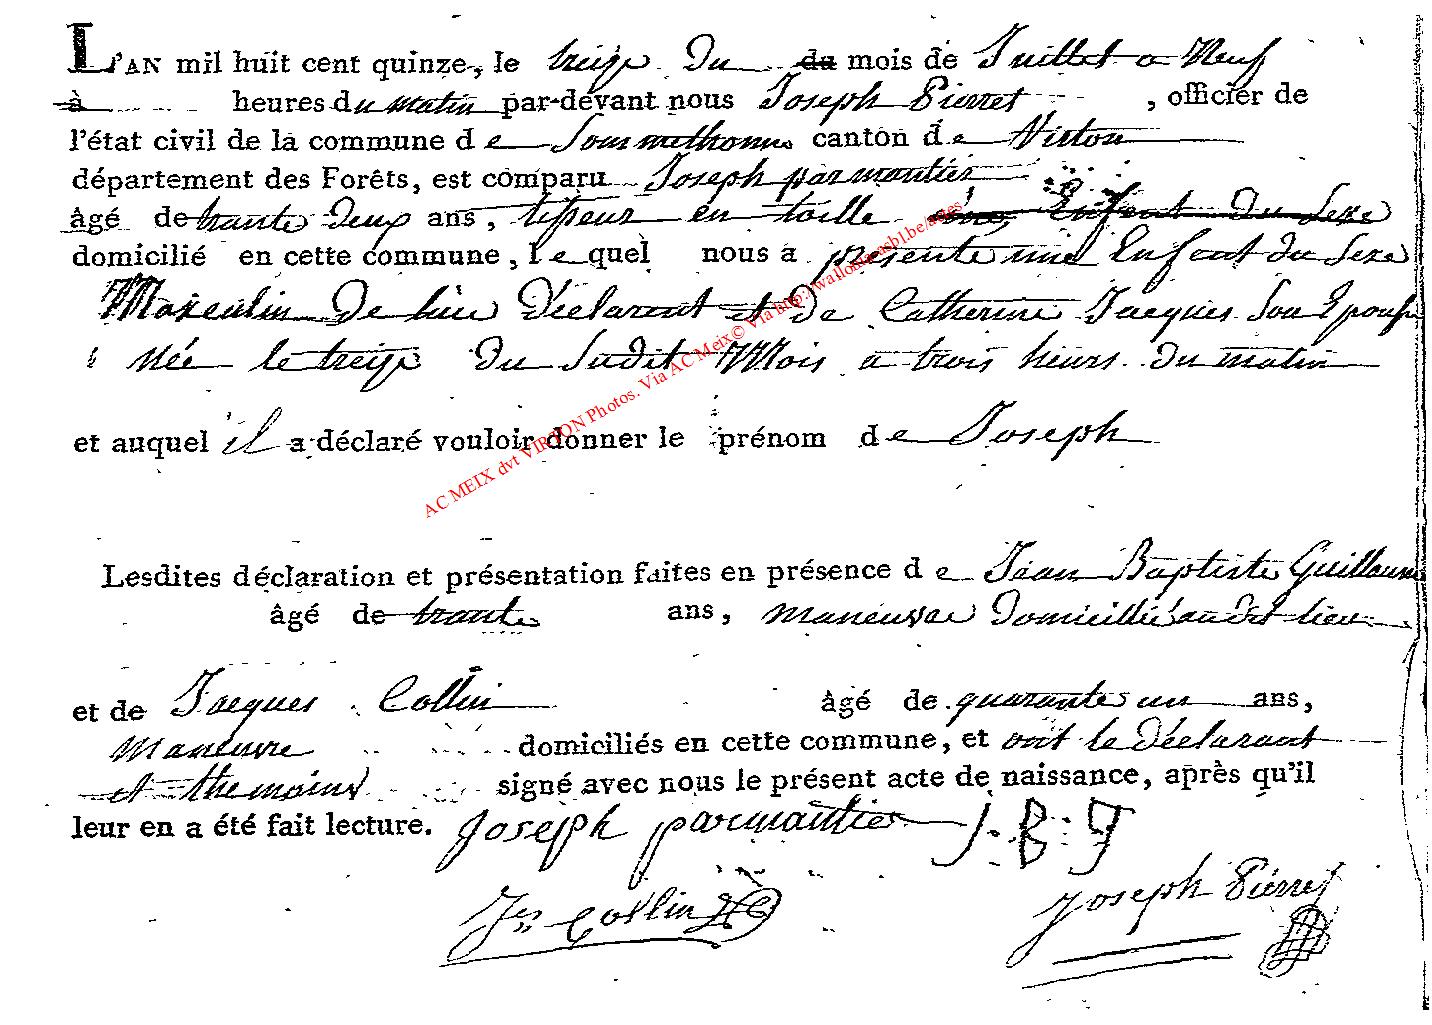 L'AN mil huit cent quinze, le treize du du mois de Juillet a Neuf
à heures du matin par-devant nous Joseph Pierret, officier de
l'état civil de la commune de Sommethonne canton de Virton
département des Forêts, est comparu Joseph parmantier
âgé de trante deux ans, tisseur en toille une Enfant du Sexe
domicilié en cette commune, lequel nous a présenté une Enfant du Sexe
Masculin De lui Déclarant et de Catherine Jacques Son Epouse
Née le treize du Sudit Mois a trois heurs du matin
et auquel il a déclaré vouloir donner le prénom de Joseph
Lesdites déclaration et présentation faites en présence de Jean Baptiste Guillaume
âgé de trante ans, maneuvre Domicillié audit lieu
et de Jacques Collin âgé de quarante un ans,
Maneuvre domiciliés en cette commune, et ont le déclarant
et themoins signé avec nous le présent acte de naissance, après qu'il
leur en a été fait lecture. Joseph parmantier J. B. G
Jes Collin Joseph Pierret
AC MEIX dvt VIRTON Photos. Via AC Meix© Via http://walloniaasbl.be/actes